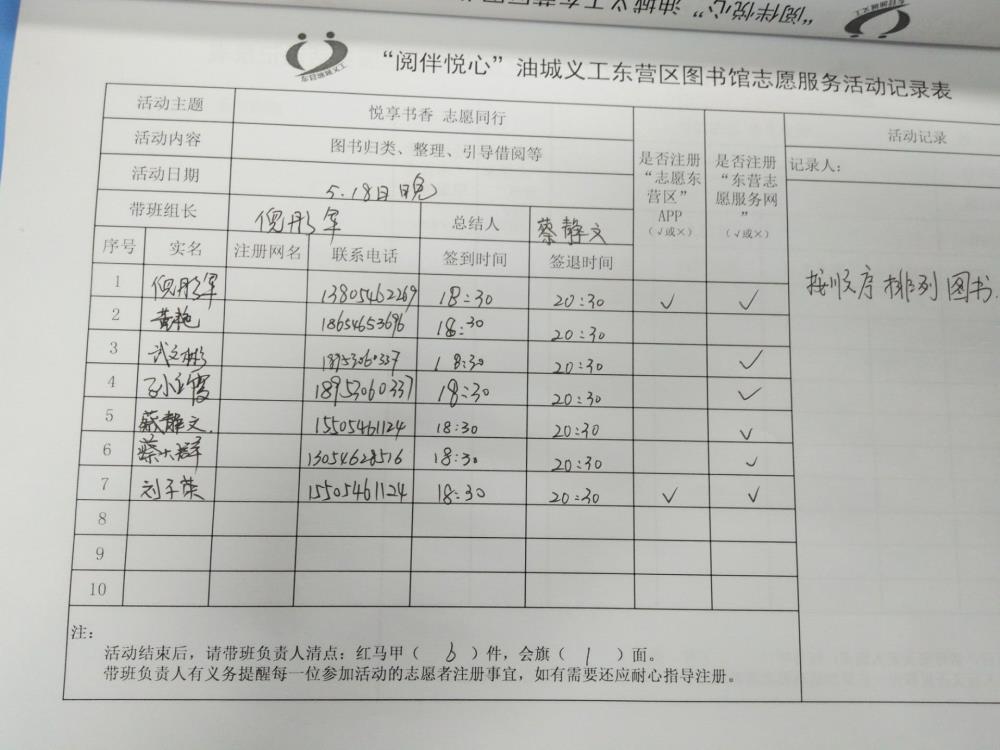 东营油城义工
“阅伴悦心”油城义工东营区图书馆志愿服务活动记录表
活动主题 悦享书香 志愿同行 是否注册“志愿东营区”APP（√或×） 是否注册“东营志愿服务网”（√或×） 活动记录
活动内容 图书归类、整理、引导借阅等 记录人：
活动日期 5.18日晚
带班组长 倪彤军 总结人 蔡静文
序号 实名 注册网名 联系电话 签到时间 签退时间
按顺序排列图书.
1 倪彤军 13805462269 18:30 20:30 √ √
2 黄艳 18654653696 18:30 20:30
3 武立彬 18953060337 18:30 20:30 √
4 18953060337 18:30 20:30 √
5 蔡静文. 15505461124 18:30 20:30 √
6 蔡大群 13054628516 18:30 20:30 √
7 刘子英 15505461124 18:30 20:30 √ √
8
9
10
注：
活动结束后，请带班负责人清点：红马甲（ 6 ）件，会旗（ 1 ）面。
带班负责人有义务提醒每一位参加活动的志愿者注册事宜，如有需要还应耐心指导注册。